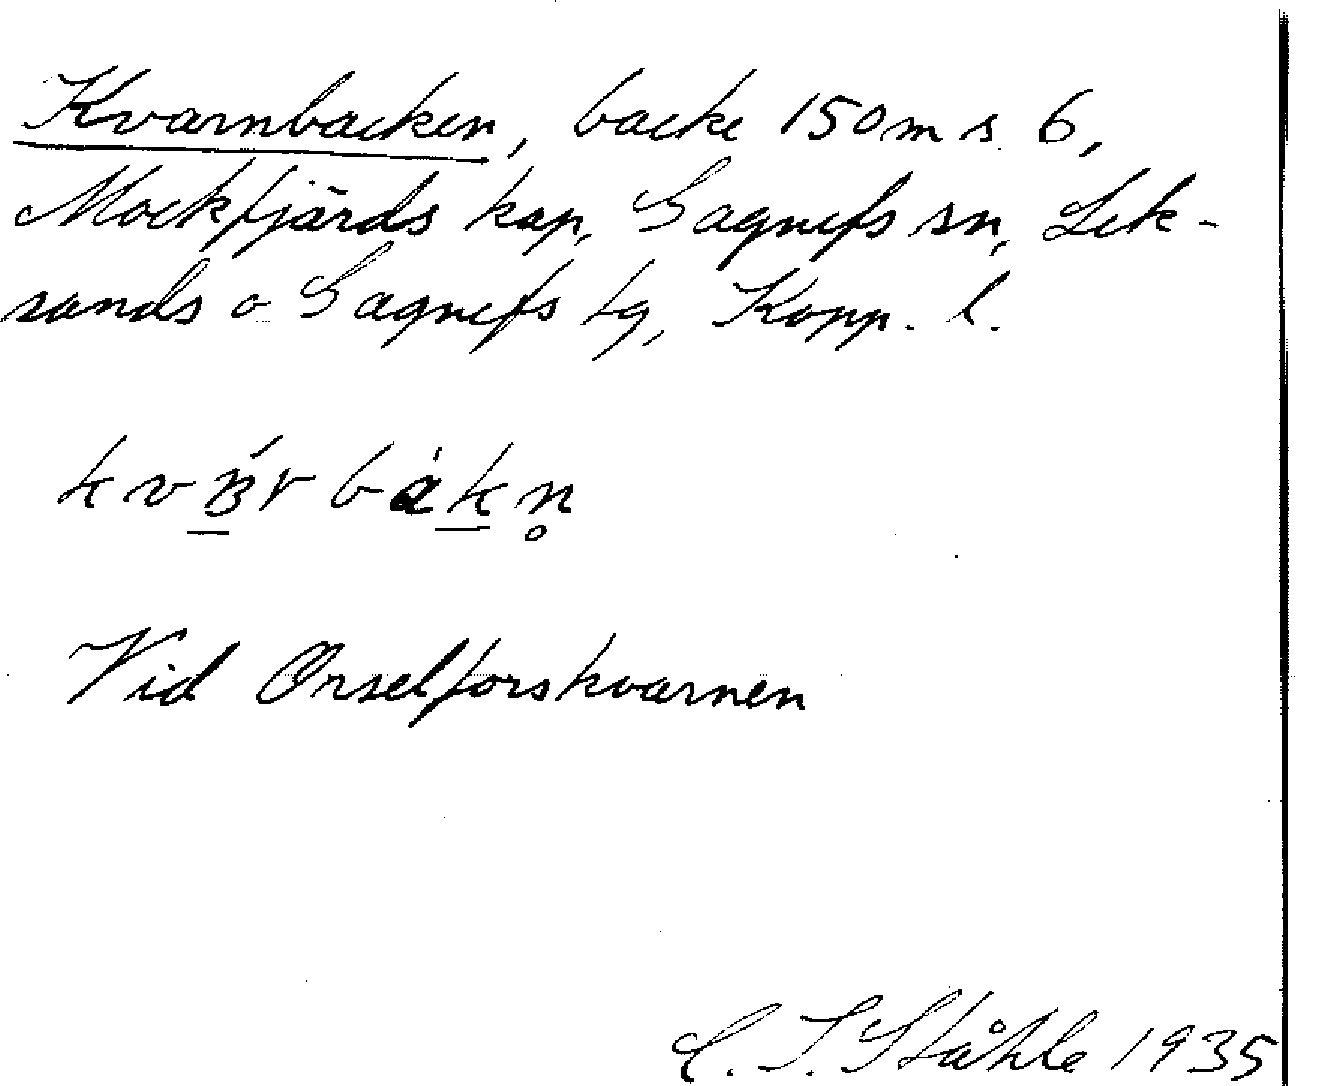 Kvarnbacken, backe 150 m s. 6,
Mockfjärds kap, Gagnefs sn, Lek-
sands o Gagnefs tg, Kopp. l.
Vid Onselforskvarnen
C. I. Ståhle 1935